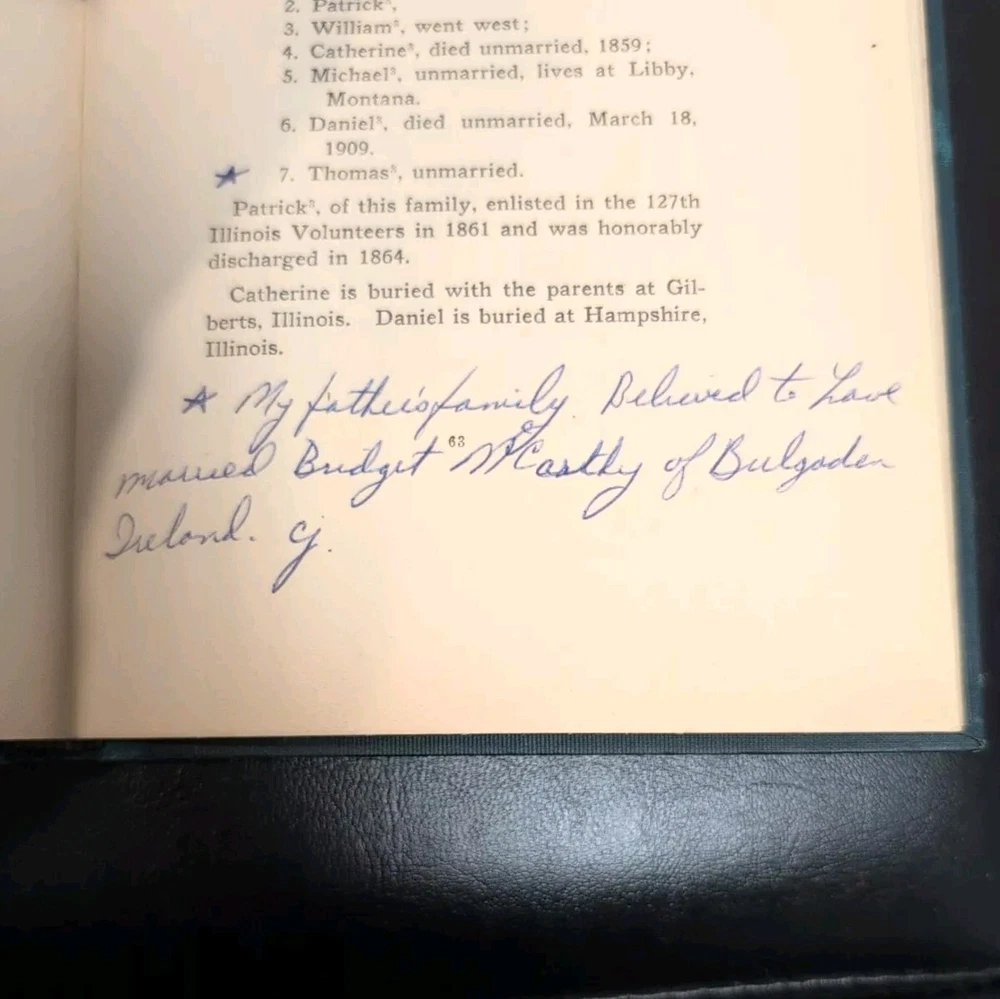 2. Patrick⁵,
3. William⁵, went west;
4. Catherine⁵, died unmarried, 1859;
5. Michael⁵, unmarried, lives at Libby,
Montana.
6. Daniel⁵, died unmarried, March 18,
1909.
★ 7. Thomas⁵, unmarried.
Patrick⁵, of this family, enlisted in the 127th
Illinois Volunteers in 1861 and was honorably
discharged in 1864.
Catherine is buried with the parents at Gil-
berts, Illinois. Daniel is buried at Hampshire,
Illinois.
★ My father's family. Believed to have
married Bridget McCarthy of Bulgaden
63
Ireland. cj.